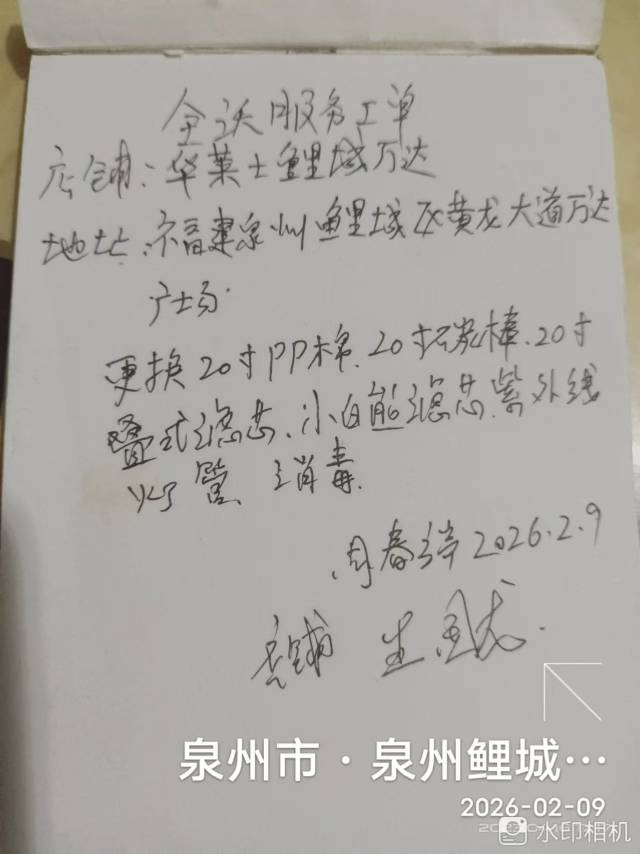 全沃服务工单
店铺：华莱士鲤城万达
地址：福建泉州鲤城区黄龙大道万达
广场.
更换20寸PP棉、20寸碳棒、20寸
叠式滤芯、小白熊滤芯.紫外线
灯管 消毒.
周春 2026.2.9
店铺
泉州市·泉州鲤城…
2026-02-09
水印相机